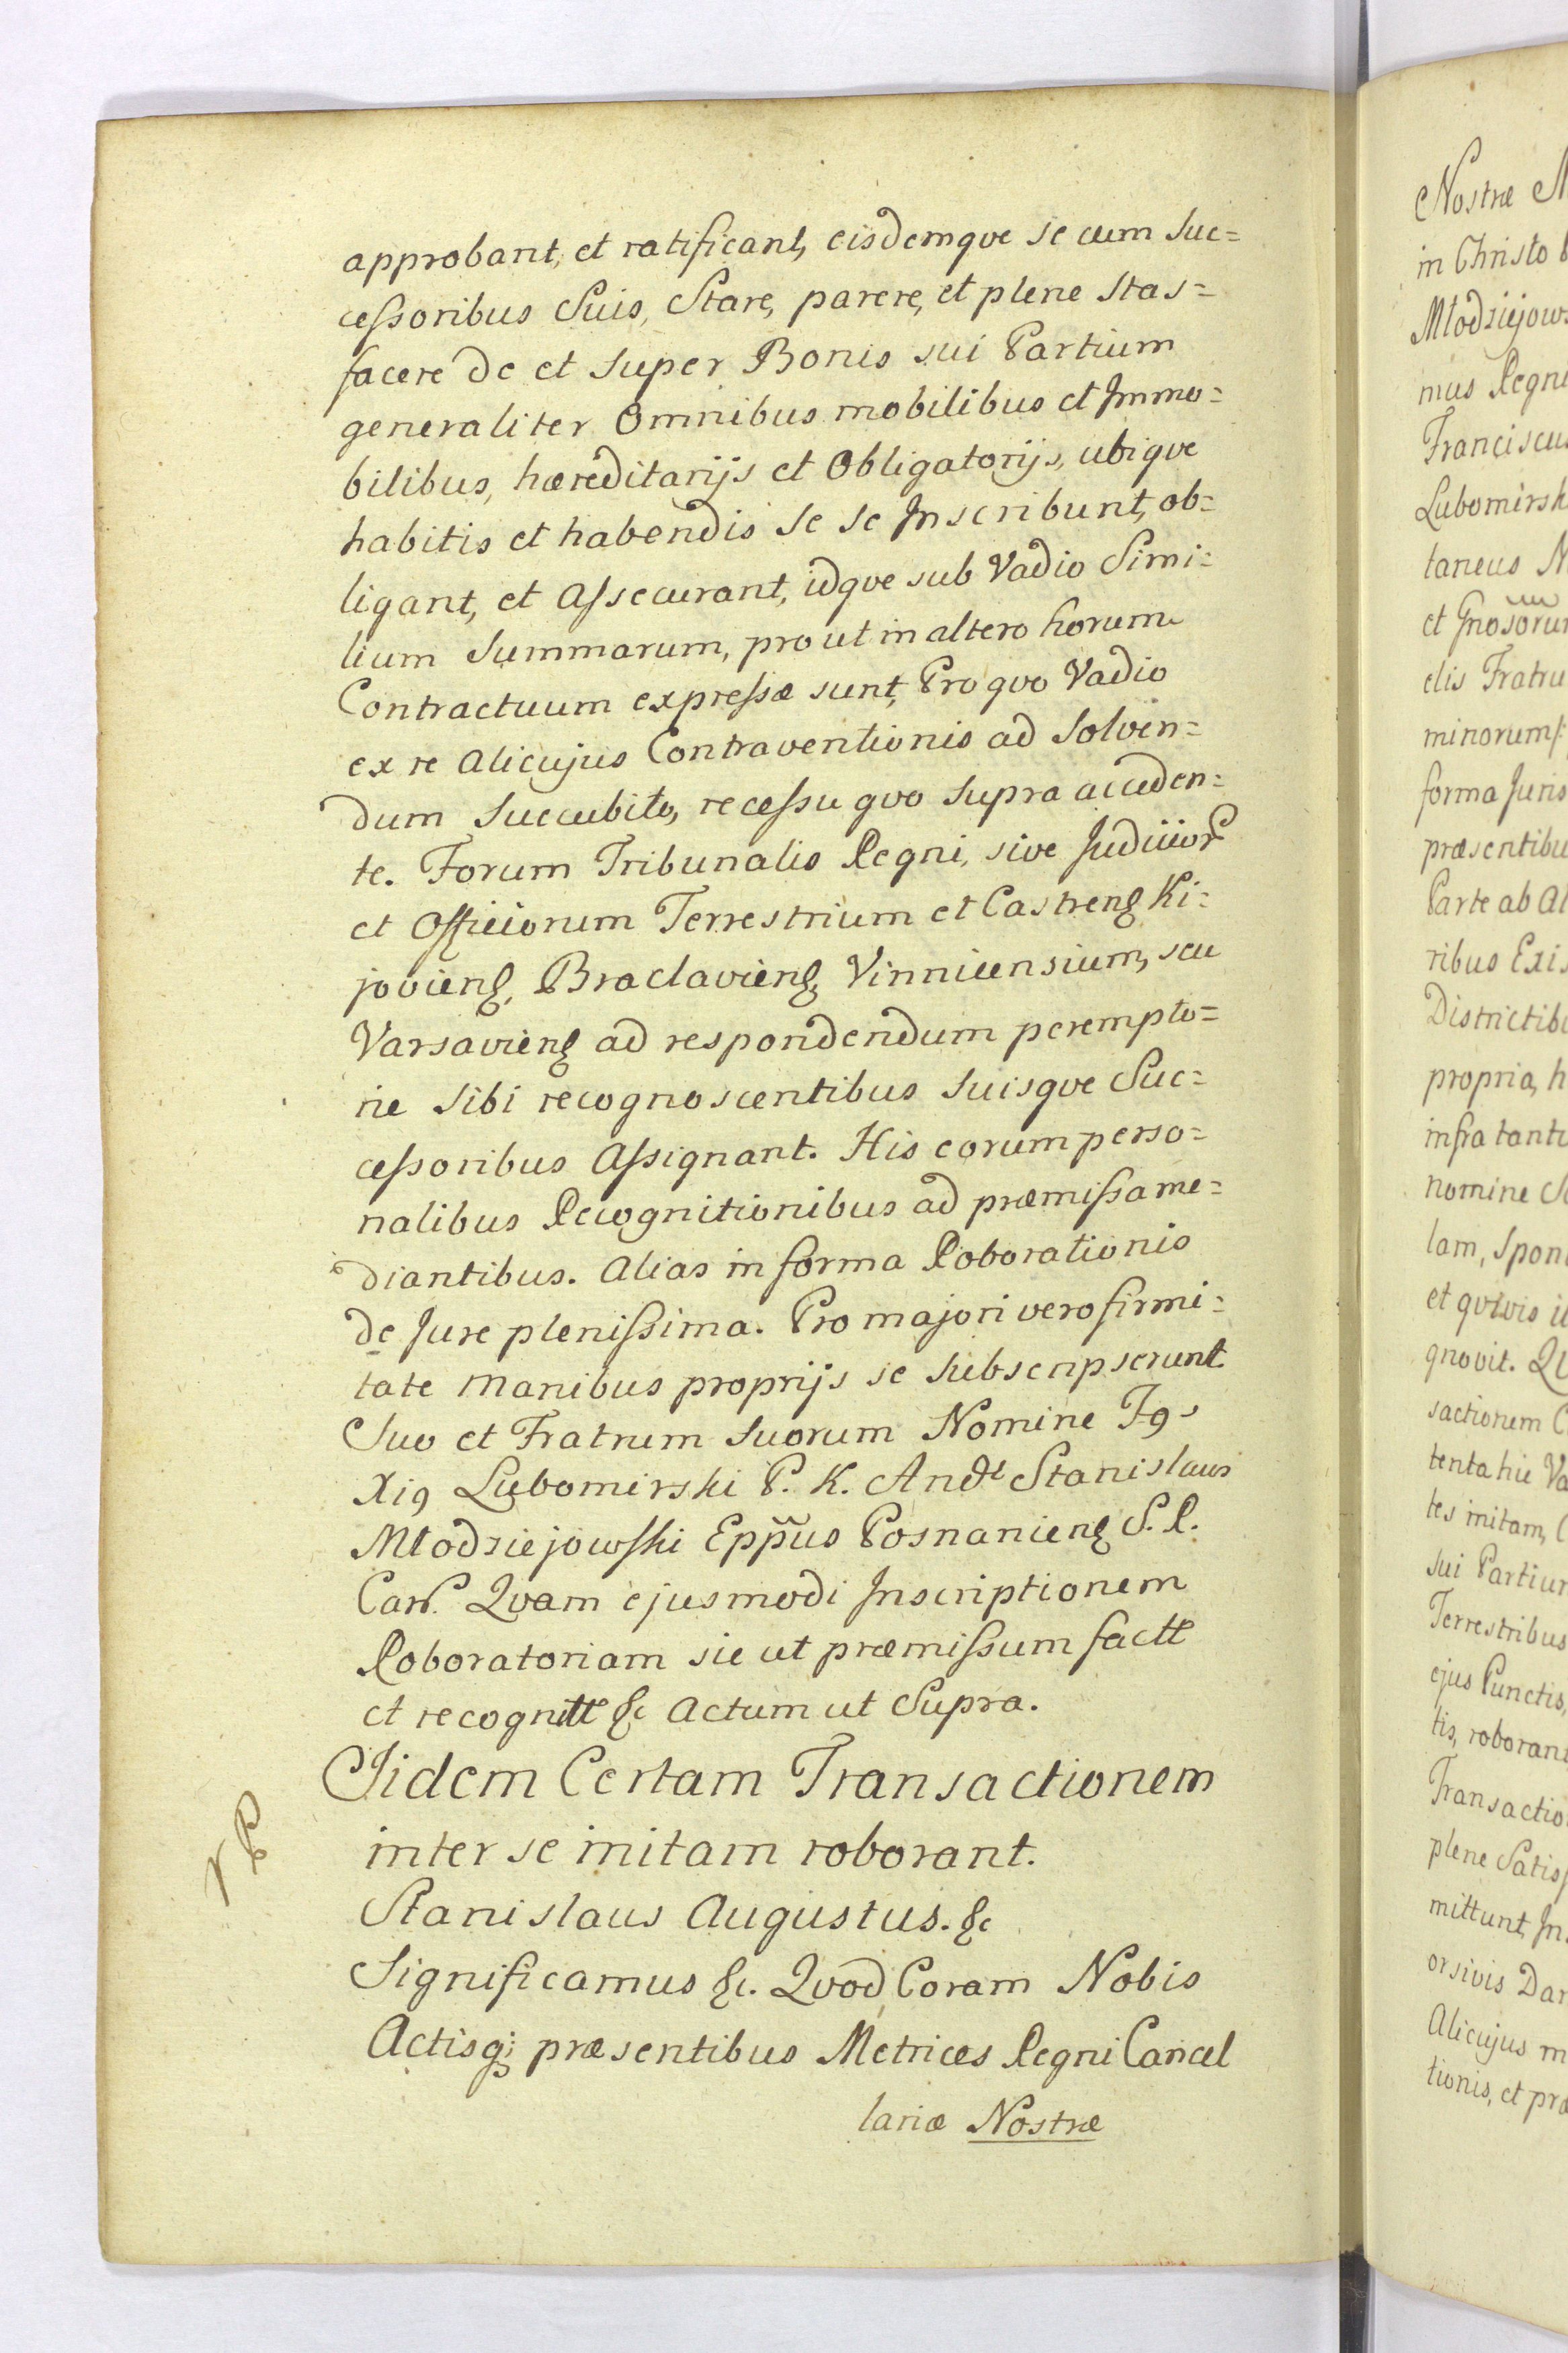 approbant, et ratificant, eisdemque se cum Suc=
cessoribus Suis, Stare, parere, et plene Stas=
facere de et Super Bonis sui Partium
generaliter Omnibus mobilibus et Immo=
bilibus, hæreditarijs et Obligatorijs, ubique
habitis et habendis se se Inscribunt, ob=
ligant, et Assecurant, idque sub Vadio Simi=
lium Summarum, prout in altero horum
Contractuum expressæ sunt, Pro quo Vadio
ex re Alicujus Contraventionis ad Solven=
dum Succubito, recessu quo Supra acceden=
te. Forum Tribunalis Regni, sive Judicior
et Officiorum Terrestrium et Castren Ki=
jovien, Braclavien, Vinnicensium, seu
Varsavien ad respondendum perempto=
rie Sibi recognoscentibus Suisque Suc=
cessoribus Assignant. His eorum perso=
nalibus Recognitionibus ad præmissa me=
diantibus. Alias in forma Roborationis
de Jure plenissima. Pro majori vero firmi=
tate Manibus proprijs se Subscripserunt
Suo et Fratrum Suorum Nomine
Xi9 Lubomirski P. K. And Stanislaus
Młodziejowski Eppus Posnanien S. R.
Can. Quam ejusmodi Inscriptionem
Roboratoriam sic ut præmissum factt
et recognitt &c Actum ut Supra.
Iidem Certam Transactionem
inter se initam roborant.
Stanislaus Augustus. &c
Significamus &c. Quod Coram Nobis
Actisq; præsentibus Metrices Regni Cancel
lariæ Nostræ
Nostræ
in Christo
Młodziejows
mus Regni
Franciscus
Lubomirsk
taneus
et Gnosorum
elis Fratru
minorum
forma Juris
præsentibu
Parte ab Al
ribus Exis
Districtibu
propria, h
infra tantu
nomine
lam, Spon
et quivis
gnovit.
sactionem
tenta hic Va
tes initam,
sui Partium
Terrestribus
ejus Punctis,
tis, roborant
Transactio
plene Satisf
mittunt, In
orsivis Dar
Alicujus m
tionis, et præ